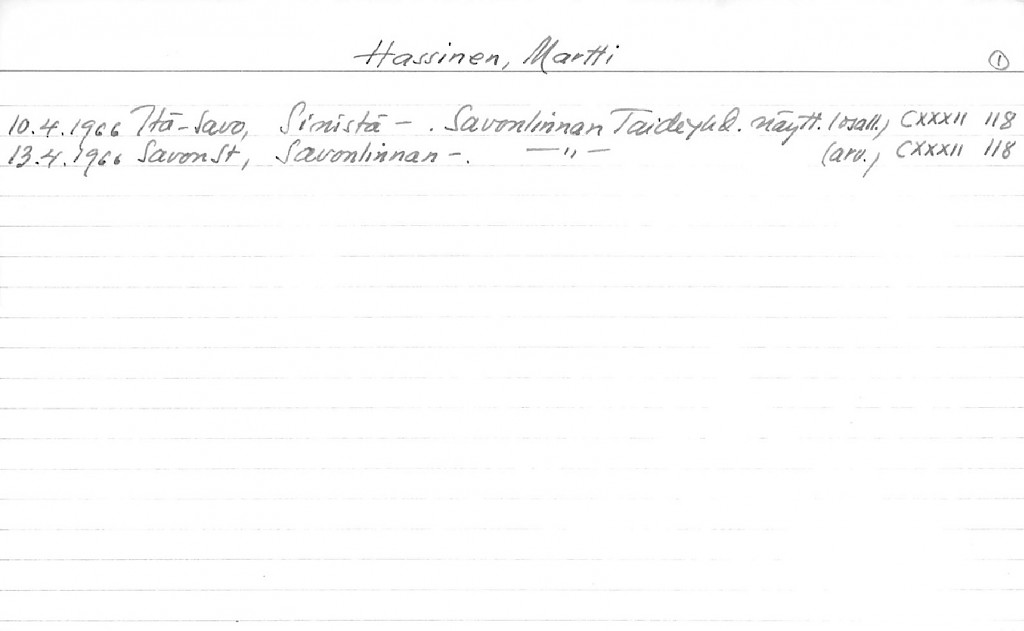 Hassinen, Martti ①
10.4.1966 Itä-Savo, Sinistä - . Savonlinnan Taideyhd. näytt. (osall.) CXXXII 118
13.4.1966 Savon St, Savonlinnan -. —„— (arv.) CXXXII 118